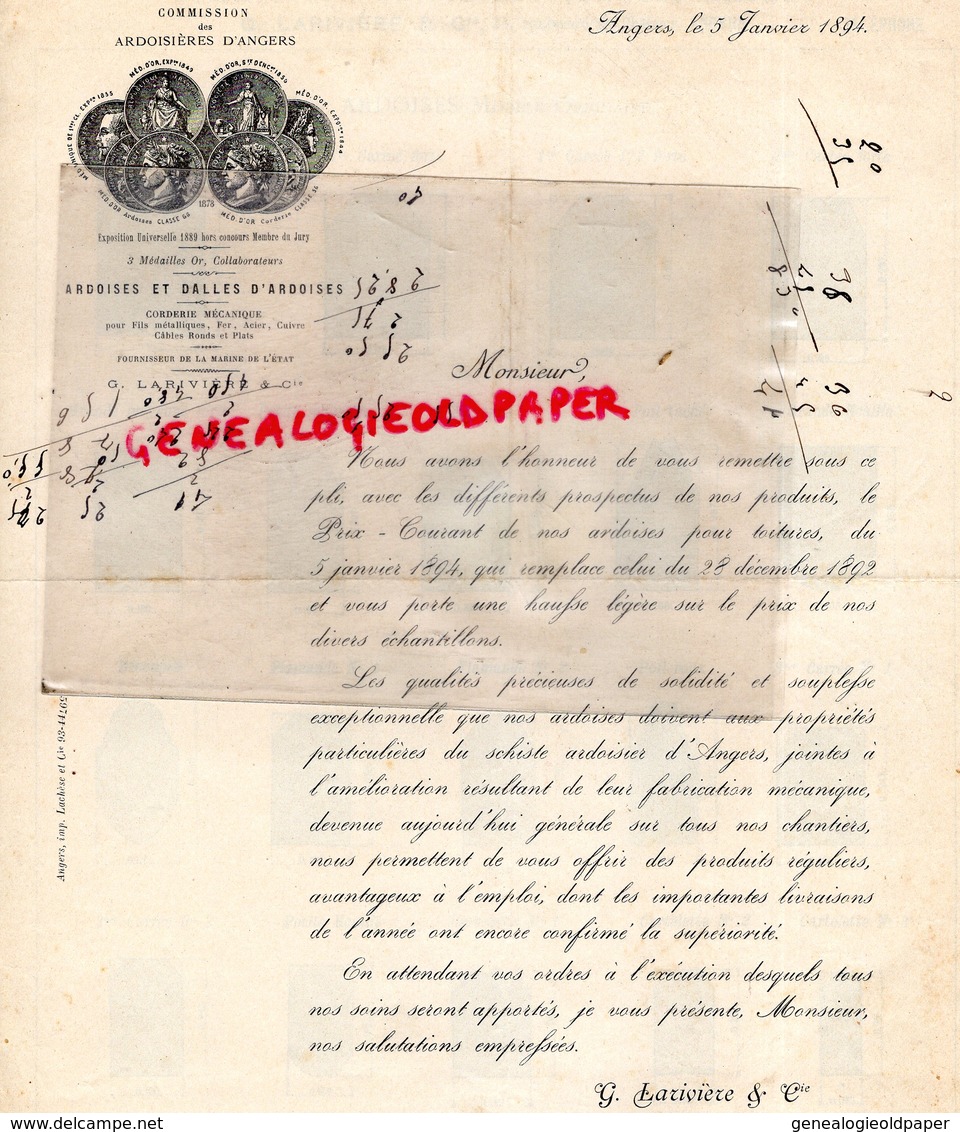 COMMISSION
des
ARDOISIÈRES D'ANGERS
Angers, le 5 Janvier 1894.
MÉD. UNIQUE DE 1re CL. EXPon 1855
MÉD. D'OR, EXPon 1849
MÉD. D'OR, Sté D'ENCt 1850
MÉD. D'OR Ardoises CLASSE 68
1878
MÉD. D'OR Corderie CLASSE 56
Exposition Universelle 1889 hors concours Membre du Jury
3 Médailles Or, Collaborateurs
ARDOISES ET DALLES D'ARDOISES
CORDERIE MÉCANIQUE
pour Fils métalliques, Fer, Acier, Cuivre
Câbles Ronds et Plats
FOURNISSEUR DE LA MARINE DE L'ÉTAT
G. LARIVIÈRE & Cie
GENEALOGIEOLDPAPER
Monsieur,
Nous avons l'honneur de vous remettre sous ce
pli, avec les différents prospectus de nos produits, le
Prix-Courant de nos ardoises pour toitures, du
5 janvier 1894, qui remplace celui du 28 décembre 1892
et vous porte une hausse légère sur le prix de nos
divers échantillons.
Les qualités précieuses de solidité et souplesse
exceptionnelle que nos ardoises doivent aux propriétés
particulières du schiste ardoisier d'Angers, jointes à
l'amélioration résultant de leur fabrication mécanique,
devenue aujourd'hui générale sur tous nos chantiers,
nous permettent de vous offrir des produits réguliers,
avantageux à l'emploi, dont les importantes livraisons
de l'année ont encore confirmé la supériorité.
En attendant vos ordres à l'exécution desquels tous
nos soins seront apportés, je vous présente, Monsieur,
nos salutations empressées.
G. Larivière & Cie
Angers, imp. Lachèse et Cie 93-11769
genealogieoldpaper